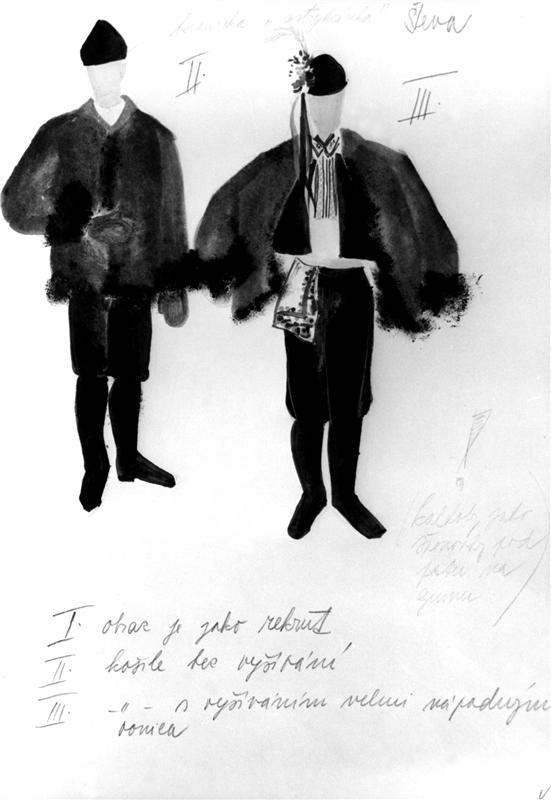 Števa
II.
III.
(kalhoty jako
pod
na
gumu)
I. obraz je jako rekrut
II. košile bez vyšívání
III. -"- s vyšíváním velmi nápadným
vonica